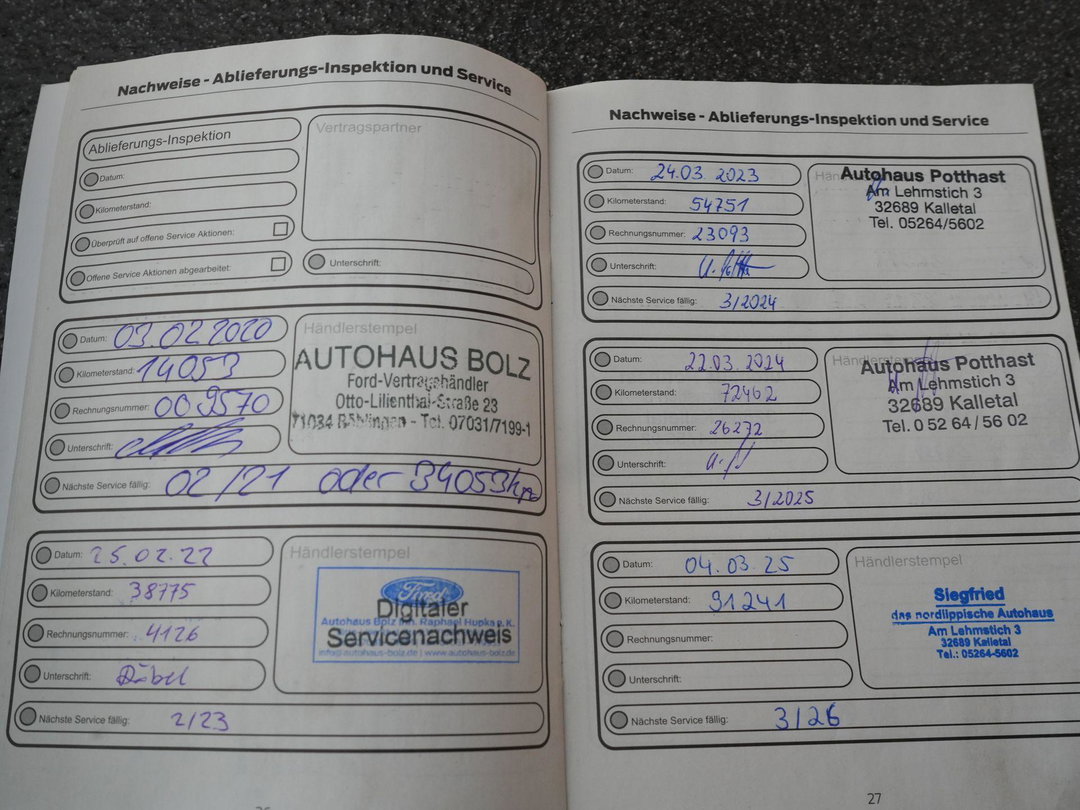 Nachweise - Ablieferungs-Inspektion und Service
Ablieferungs-Inspektion
Vertragspartner
Datum:
Kilometerstand:
Überprüft auf offene Service Aktionen:
Offene Service Aktionen abgearbeitet:
Unterschrift:
Datum: 03.02.2020
Kilometerstand: 14053
Rechnungsnummer: 009570
Unterschrift:
Nächste Service fällig: 02/21 oder 34053km
Händlerstempel
AUTOHAUS BOLZ
Ford-Vertragshändler
Otto-Lilienthal-Straße 23
71034 Böblingen - Tel. 07031/7199-1
Datum: 25.02.22
Kilometerstand: 38775
Rechnungsnummer: 4126
Unterschrift:
Nächste Service fällig: 2/23
Händlerstempel
Ford
Digitaler
Autohaus Bolz Inh. Raphael Hupka e.K.
Servicenachweis
info@autohaus-bolz.de | www.autohaus-bolz.de
Nachweise - Ablieferungs-Inspektion und Service
Datum: 24.03.2023
Kilometerstand: 54751
Rechnungsnummer: 23093
Unterschrift:
Nächste Service fällig: 3/2024
Autohaus Potthast
Am Lehmstich 3
32689 Kalletal
Tel. 05264/5602
Datum: 22.03.2024
Kilometerstand: 72462
Rechnungsnummer: 26272
Unterschrift:
Nächste Service fällig: 3/2025
Händlerstempel
Autohaus Potthast
Am Lehmstich 3
32689 Kalletal
Tel. 0 52 64 / 56 02
Datum: 04.03.25
Kilometerstand: 91241
Rechnungsnummer:
Unterschrift:
Nächste Service fällig: 3/26
Händlerstempel
Siegfried
das nordlippische Autohaus
Am Lehmstich 3
32689 Kalletal
Tel.: 05264-5602
27